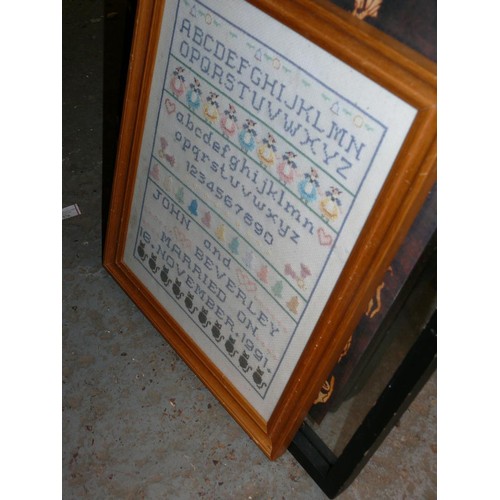 ABCDEFGHIJKLMN
OPQRSTUVWXYZ
abcdefghijklmn
opqrstuvwxyz
1234567890
JOHN and
BEVERLEY
MARRIED ON
16.NOVEMBER.1991.